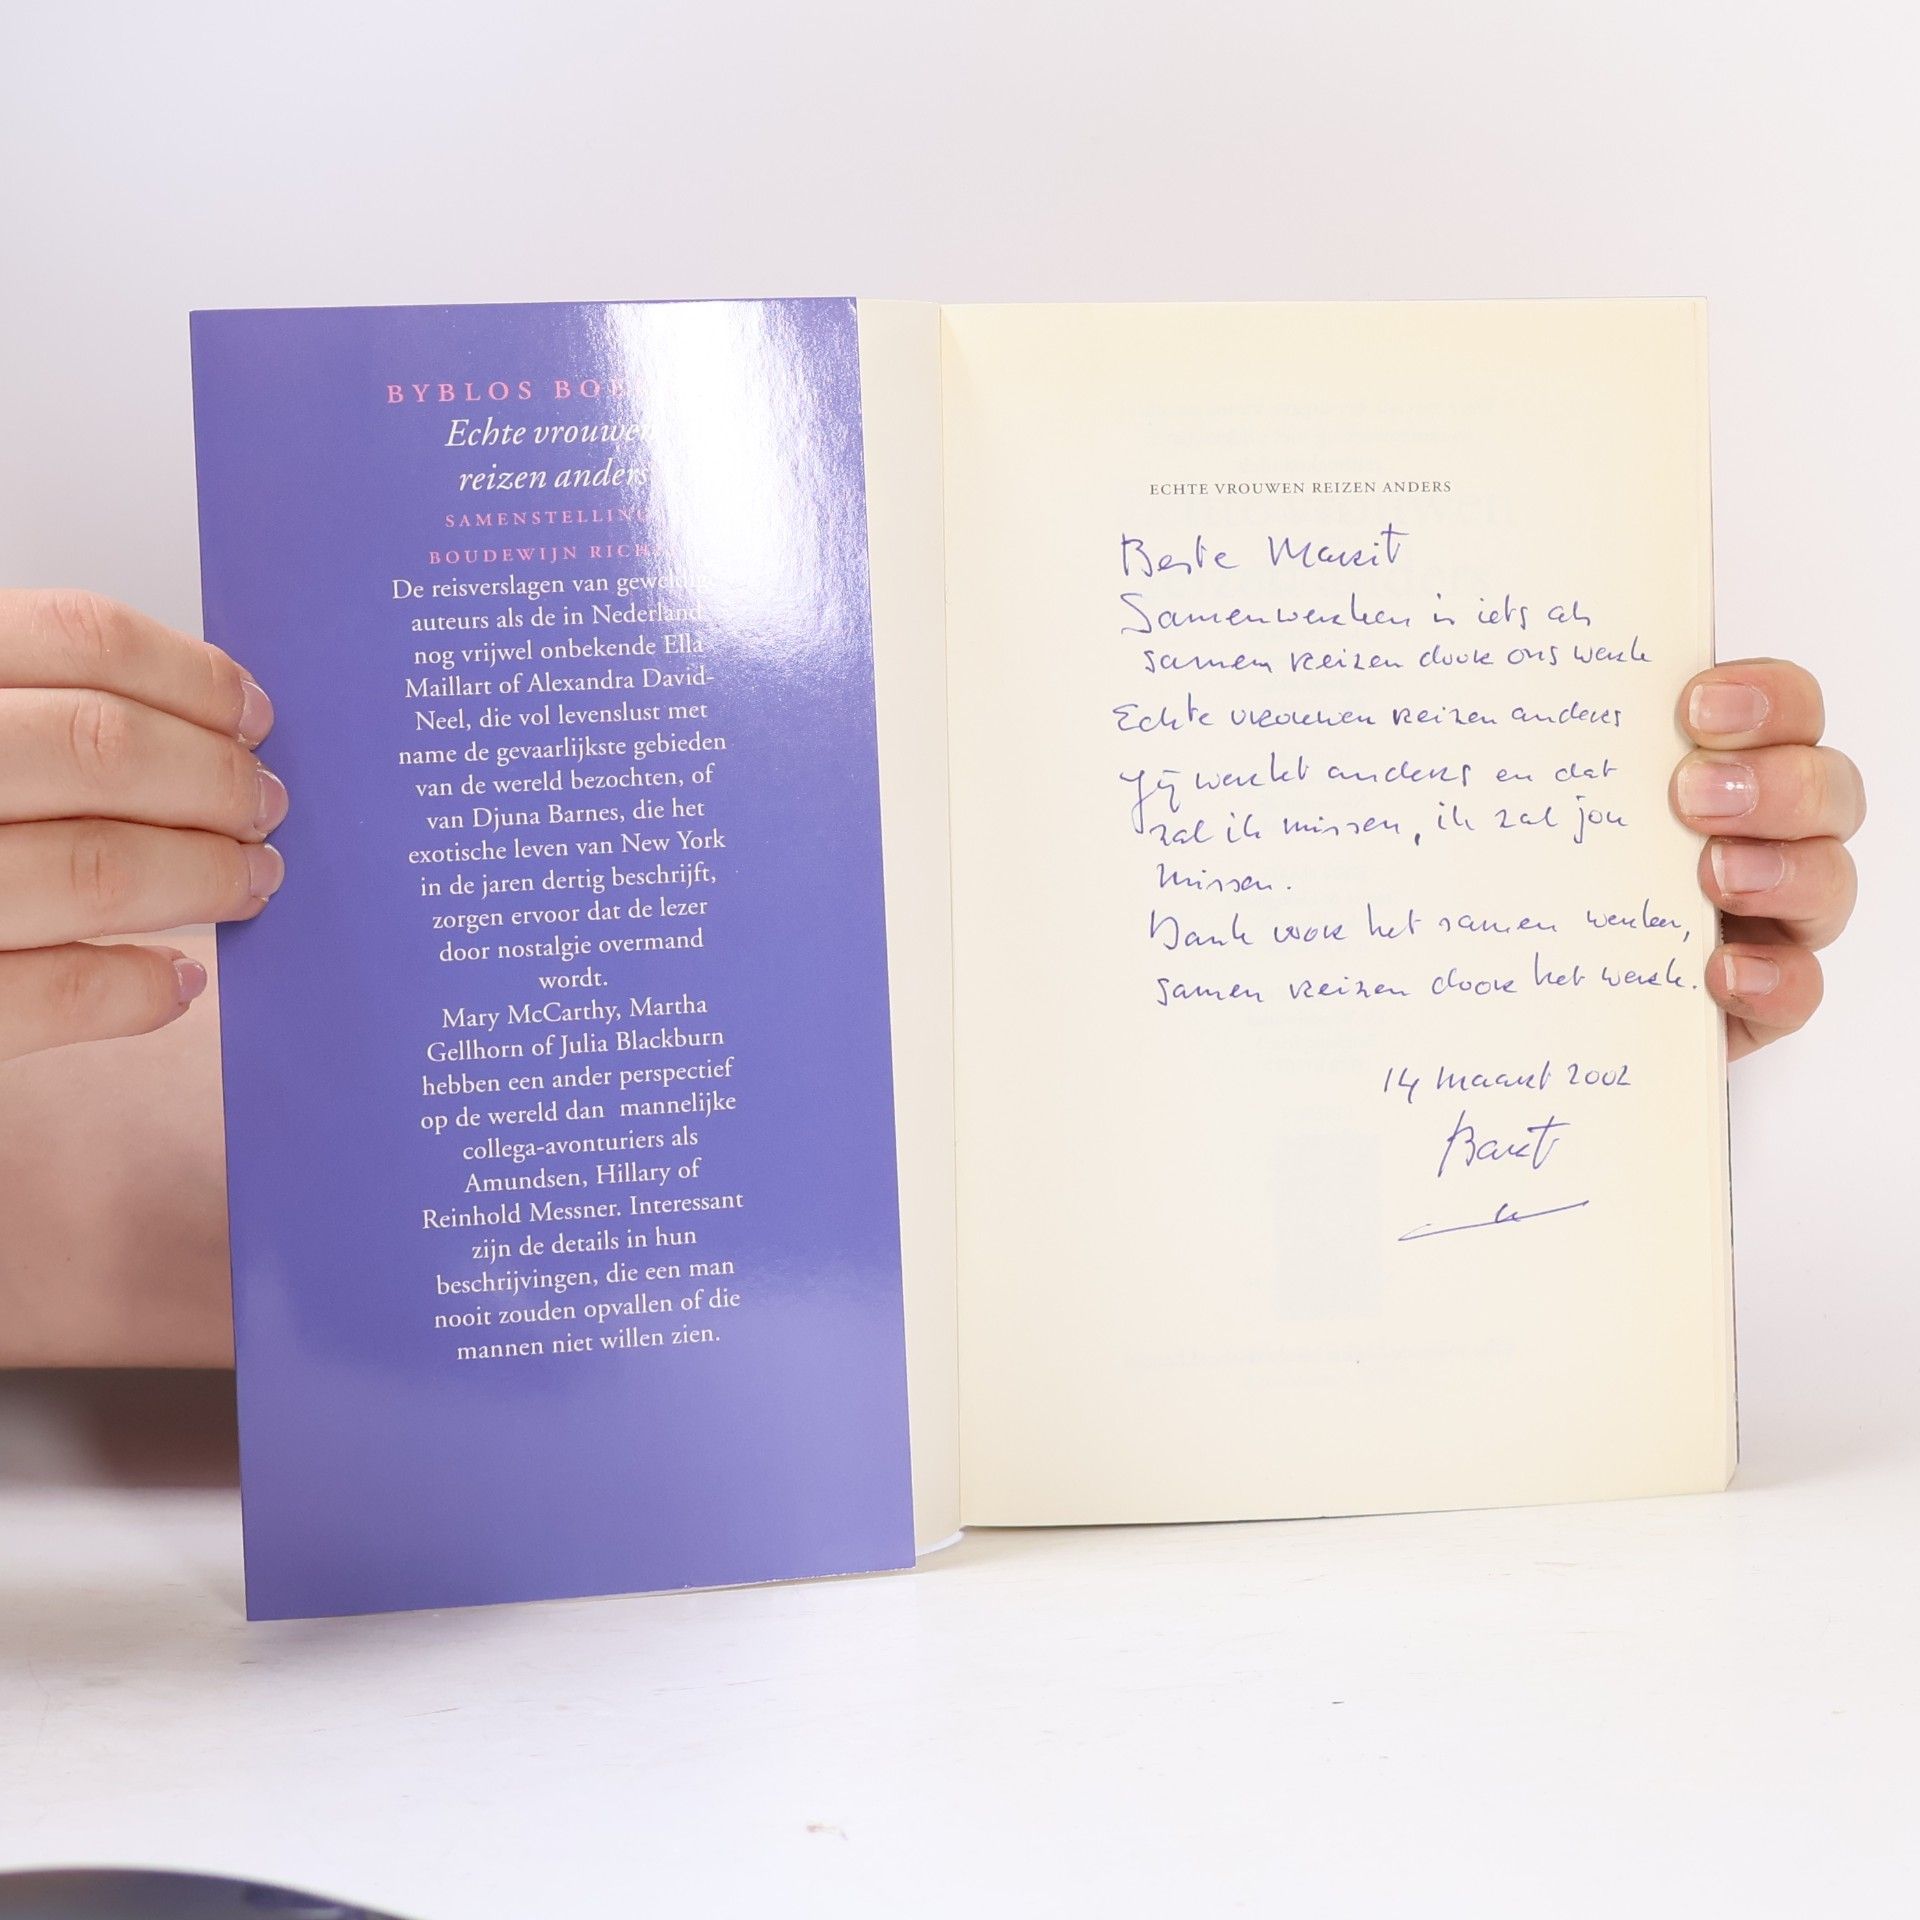 BYBLOS
Echte vrouwen
reizen anders
SAMENSTELLING
BOUDEWIJN
De reisverslagen van geweldige
auteurs als de in Nederland
nog vrijwel onbekende Ella
Maillart of Alexandra David-
Neel, die vol levenslust met
name de gevaarlijkste gebieden
van de wereld bezochten, of
van Djuna Barnes, die het
exotische leven van New York
in de jaren dertig beschrijft,
zorgen ervoor dat de lezer
door nostalgie overmand
wordt.
Mary McCarthy, Martha
Gellhorn of Julia Blackburn
hebben een ander perspectief
op de wereld dan mannelijke
collega-avonturiers als
Amundsen, Hillary of
Reinhold Messner. Interessant
zijn de details in hun
beschrijvingen, die een man
nooit zouden opvallen of die
mannen niet willen zien.
ECHTE VROUWEN REIZEN ANDERS
Beste Marit
Samenwerken is iets als
samen reizen door ons werk
Echte vrouwen reizen anders
Jij werkt anders en dat
zal ik missen, ik zal jou
missen.
Dank voor het samen werken,
samen reizen door het werk.
14 maart 2002
Bart